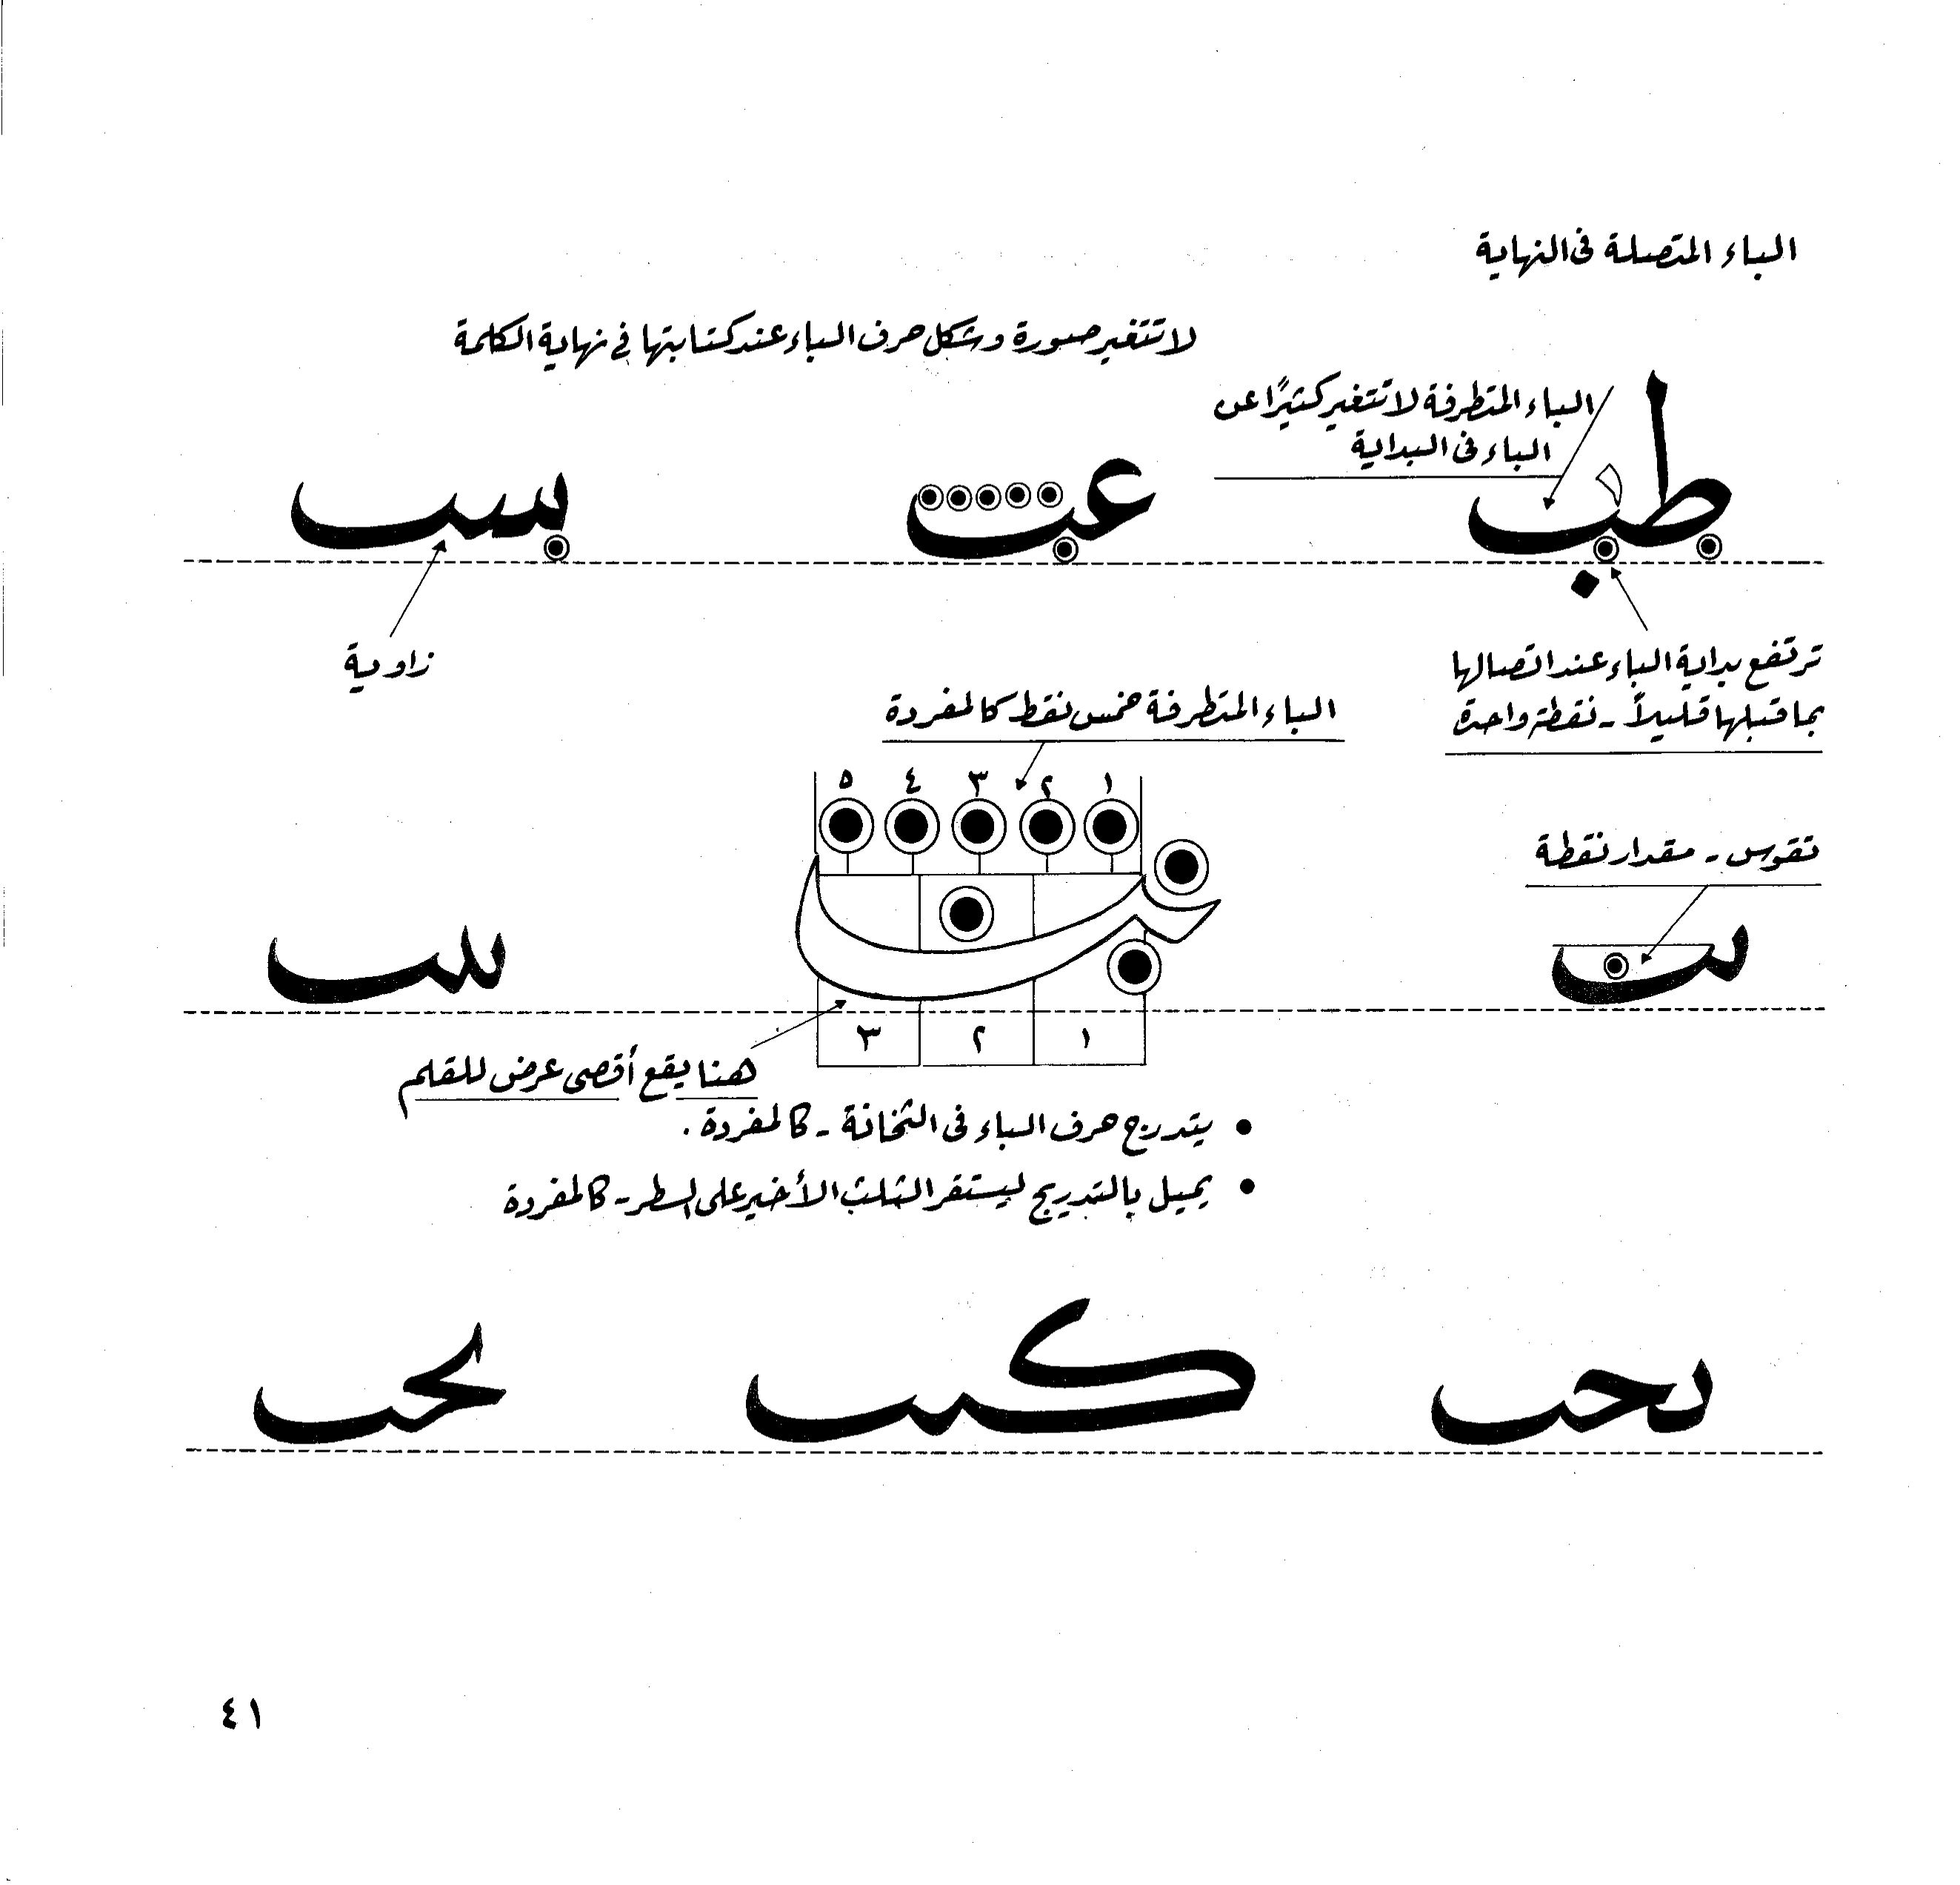 الباء المتصلة فى النهاية
لا تتغير صورة وشكل حرف الباء عند كتابتها فى نهاية الكلمة
الباء المتطرفة لا تتغير كثيرًا عن
الباء فى البداية
طب
عب
بسب
ترتفع بداية الباء عند اتصالها
بما قبلها قليلاً - نقطة واحدة
زاوية
الباء المتطرفة خمس نقط كالمفردة
١ ٢ ٣ ٤ ٥
تقوس - مقدار نقطة
١ ٢ ٣
هنا يقع أقصى عرض للقلم
• يتدرج حرف الباء فى الثخانة - كالمفردة .
• يميل بالتدريج ليستقر الثلث الأخير على السطر - كالمفردة
٤١